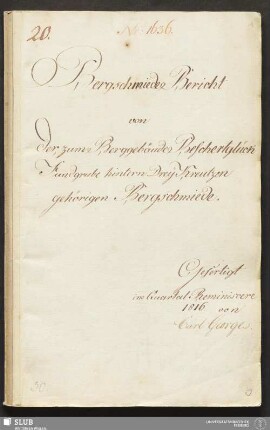 20.
No 1636.
Bergschmiede Bericht
von
der zum Berggebäude Bescherthglück
Fundgrube hintern Drey Kreutzen
gehörigen Bergschmiede.
Gefertigt
im Quartal Reminiscere
1816 von
Carl
SLUB